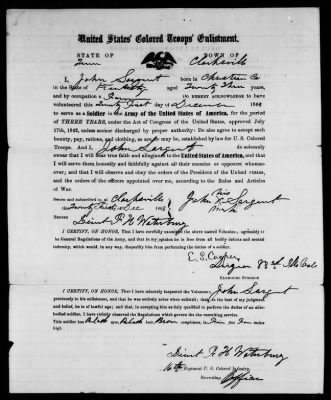 United States' Colored Troops' Enlistment.
STATE OF TOWN OF
Tenn Clarksville
I, John Sargent born in Christian Co
in the State of Kentucky aged Twenty Three years,
and by occupation a DO HEREBY ACKNOWLEDGE to have
volunteered this Twenty First day of December 1863
to serve as a Soldier in the Army of the United States of America, for the
period of THREE YEARS, under the Act of Congress of the United States, approved July
17th, 1862, unless sooner discharged by proper authority: Do also agree to accept such
bounty, pay, rations, and clothing, as are or may be, established by law for U. S. Colored
Troops. And I, John Sargent do solemnly
swear that I will bear true faith and allegiance to the United States of America, and that
I will serve them honestly and faithfully against all their enemies or opposers whomso-
ever; and that I will observe and obey the orders of the President of the United States,
and the orders of the officers appointed over me, according to the Rules and Articles
of War.
Sworn and subscribed to, at Clarksville his
this Twenty First of Dec 1863 John X Sargent
BEFORE mark
Lieut F. H. Waterbury
I CERTIFY, ON HONOR, That I have carefully examined the above named Volunteer, agreeably to
the General Regulations of the Army, and that in my opinion he is free from all bodily defects and mental
infirmity, which would, in any way, disqualify him from performing the duties of a soldier.
E. S. Cooper
Surgeon
EXAMINING SURGEON
I CERTIFY, ON HONOR, That I have minutely inspected the Volunteer, John Sargent
previously to his enlistment, and that he was entirely sober when enlisted; that, to the best of my judgment
and belief, he is of lawful age; and that, in accepting him as duly qualified to perform the duties of an able-
bodied soldier, I have strictly observed the Regulations which govern the recruiting service.
This soldier has Black eyes, Black hair, Brown complexion, is Five feet inches
high
Lieut F. H. Waterbury
16th Regiment U. S. Colored Infantry,
Recruiting Officer